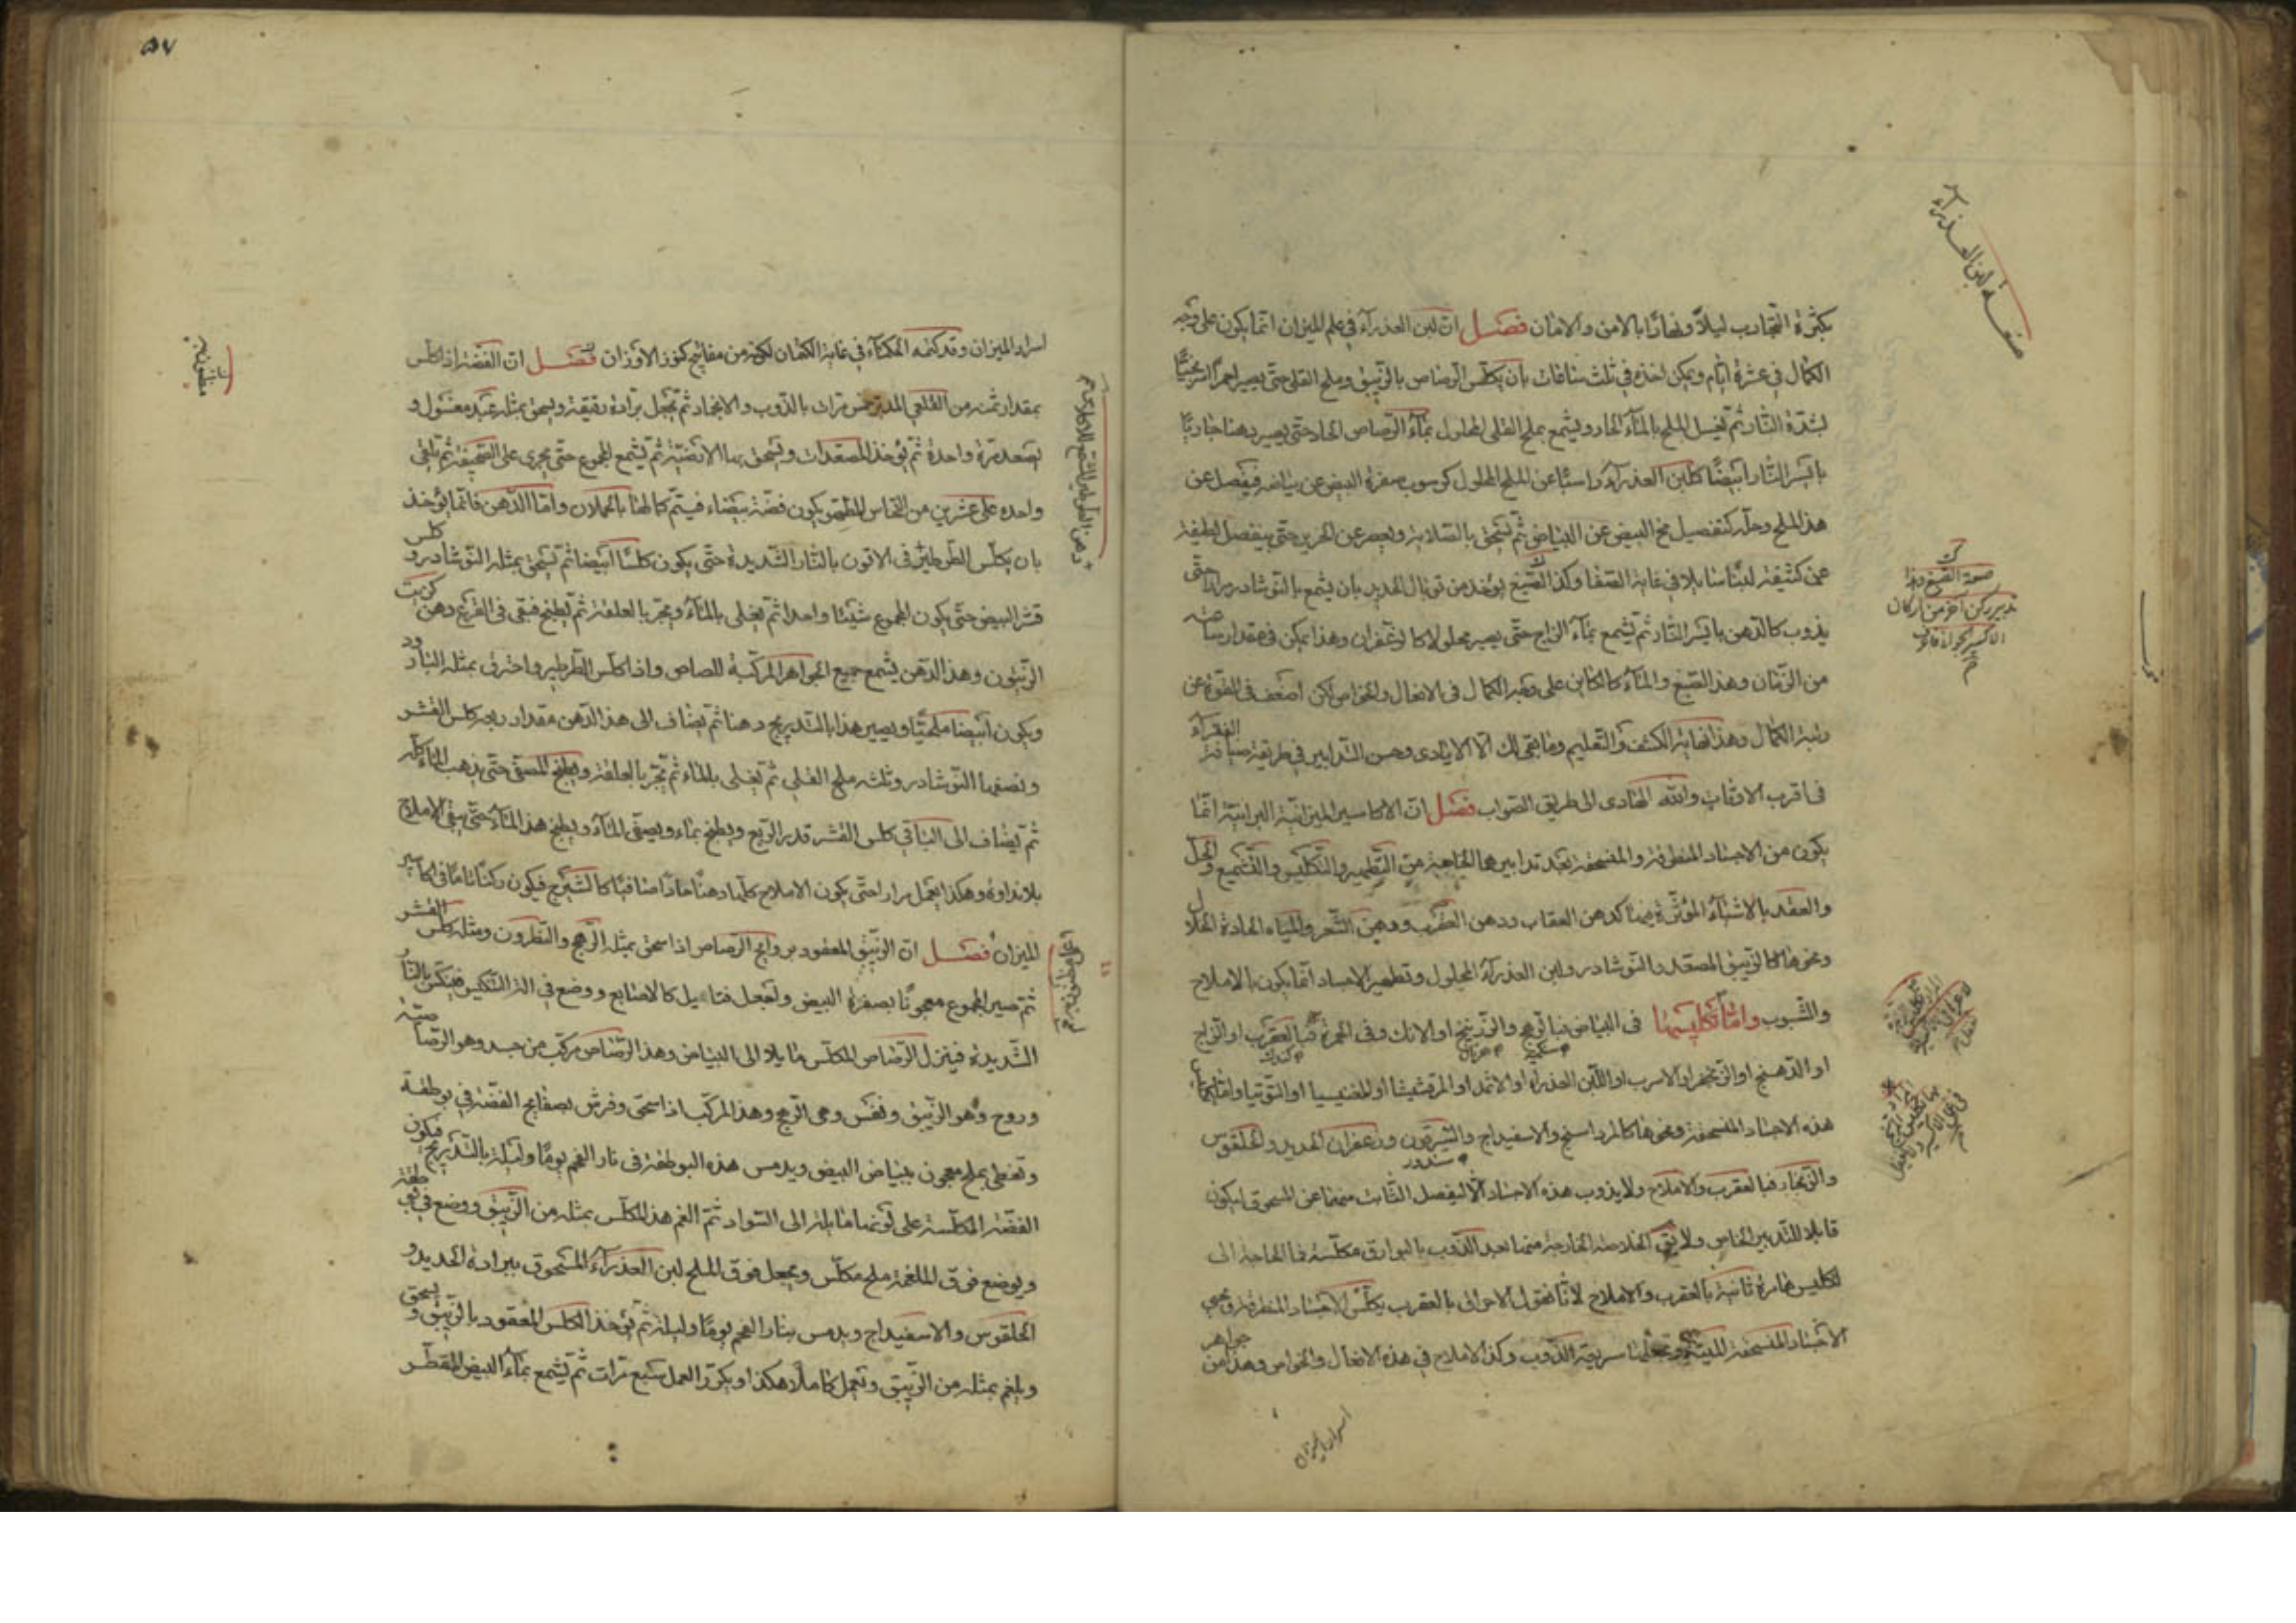 بكثرة التجارب ليلًا ونهارًا بالامن والامان فصل ان لبن العذرآء في علم الميزان انما يكون على وجه
الكمال في عشرة ايام ويمكن اخذه في ثلث ساعات بان يكلّس الرصاص بالزيبق وملح القلى حتى يصير احمرًا
لشدّة النّار ثم يغسل الملح بالمآء الحار ويشمع بملح القلى المحلول بمآء الرصاص الحاد حتى يصير دهنا جاريًا
بايسر النّار ابيضًا كلبن العذرآء راسبًا عن الملح المحلول كرسوب صفرة البيض عن بياضه فيفصل عن
هذا الملح وحلّه كتفصيل مخ البيض عن البياض ثم يسحق بالصلاية ويعصر عن الحرير حتى ينفصل لطيفه
عن كثيفه لبنًا سايلا في غاية الصفا وكذا الصّبغ يؤخذ من توبال الحديد بان يشمع بالنوشادر مرارًا حتى
يذوب كالدّهن بايسر النّار ثم يشمع بمآء الزاج حتى يصير محلولا كالزعفران وهذا يمكن في مقدار ساعته
من الزمان وهذا الصّبغ والمآء كالكاين على وجه الكمال في الافعال والخواص لكن اضعف في القوة عن
رتبة الكمال وهذا نهاية الكشف والتعليم وما بقى لك الّا الايادى وحسن التدابير في طريقة صيافة الفقرآء
في اقرب الاوقات والله الهادى الى طريق الصواب فصل ان الاكاسير الميزانية البرانية انما
يكون من الاجساد المنطرقة والمنسحقة بعد تدابيرهما الخاصة من التطهير والتكليس والتشميع والحلّ
والعقد بالاشيآء المؤثرة فيها كدهن العقاب ودهن العقرب ودهن الشعر والمياه الحادة الحلال
ونحوها كالزيبق المصعّد والنوشادر ولبن العذرآء المحلول وتطهير الاجساد انما يكون بالاملاح
والشبوب وامّا تكليسها في البياض فبالرهج والزرنيخ او الانك وفى الحمرة فبالعقرب او الزاج
او الدّهنج او الزنجفر او الاسرب او اللّبن العذرآء او الاثمد او المرقشيشا او المغنيسيا او التوتيا واما
هذه الاجساد المنسحقة ونحوها كالمرداسنج والاسفيداج والسّرقون وزعفران الحديد والحلقوس
والزنجار فبالعقرب والاملاح ولا يذوب هذه الاجساد الّا ليفصل الثابت منها عن المسحوق ليكون
قابلا للتدبير الخاص ولا يبقى الخلاصة الخارجة منها بعد الذوب بالبوارق مكلّسة فما الحاجة الى
تكليس مارة ثانية بالعقرب والاملاح لانّا نقول الاحراق بالعقرب يكلّس الاجساد المنطرقة ويحيى
الاجساد المنسحقة الميتة ويجعلها سريعة الذّوب وكذا الاملاح في هذه الافعال والخواص وهذا من جواهر
اسرار الميزان
صفة لبن العذرآء
صفة الصّبغ وهذا
تدبير ركن آخر من اركان
٥٧
اسرار الميزان وقد كتمه الحكمآء في غاية الكتمان لكونه من مفاتيح كنوز الاوزان فصل ان الفضّة اذا كلّس
بمقدار ثمنه من القلعى المدبر خمس مرات بالذّوب والايخاد ثم يجعل برادة دقيقة ويسحق بمثله عبد مغسول و
يصعد مرّة واحدة ثم يؤخذ المصعدات ويسحق بها الارضيّة ثم يشمع المجموع حتى يجرى على الصّحيفة ثم يلقى
واحده على عشرين من النّحاس المطهر يكون فضّة بيضاء فيتم كمالها بالحملان واما الدّهن فانما يؤخذ
بان يكلّس الطرطير في الاتون بالنّار الشديدة حتى يكون كلسًا ابيضا ثم يسحق بمثله النوشادر و كلس
قشر البيض حتى يكون المجموع شيئا واحدا ثم يغلى بالمآء ويجرّ بالعلقة ثم يطبخ فبقى في القرع دهن
الزيتون وهذا الدّهن يشمع جميع الجواهر المركّبة للصاص واذا كلّس الطرطير واحترق بمثله البارود
ويكون ابيضا ملحيًّا ويصير هذا بالتدريج دهنا ثم يضاف الى هذا الدّهن مقدار ربعه كلس القشر
ونصفها النوشادر وثلثه ملح القلى ثم يغلى بالمآء ثم تجرّ بالعلقة ويطبخ المصفى حتى يذهب المآء كله
ثم يضاف الى الباقى كلس القشر قدر الربع ويطبخ بماء ويصفّى المآء ويطبخ هذا المآء حتى يبقى الاملاح
بلا نداوة وهكذا يعمل مرارا حتى يكون الاملاح كلّها دهنًا حادًا صافيًا كالشيرج فيكون ركنًا تامًا في اكاسير
الميزان فصل ان الزيبق المعقود بروايح الرّصاص اذا سحق بمثله الرّهج والنّطرون ومثله كلس القشر
ثم يصير المجموع معجونًا بصفرة البيض ولتجعل فتايل كالاصابع ووضع في آلة التكليس فيكلّس بالنّار
الشديدة فينزل الرّصاص المكلّس مايلا الى البياض وهذا الرّصاص مركّب من جسد وهو الرّصاص
وروح وهو الزيبق ونفس وهى الرّهج وهذا المركّب اذا سحق وفرش بصفايح الفضّة في بوطقة
وتغطى بملح معجون ببياض البيض ويدمس هذه البوطقة في نار الفحم يومًا وليلة بالتدريج فيكون
الفضّة المكلّسة على لونها مايلة الى السّواد ثم الغم هذا المكلّس بمثله من الزيبق ووضع في بوطقة
ويوضع فوق الملغمة ملح مكلّس ويجعل فوق الملح لبن العذرآء المسحوق ببرادة الحديد و
الحلقوس والاسفيداج ويدمس بنار الفحم يومًا وليلة ثم يؤخذ الكلس المعقود بالزيبق و يسحق
ويلغم بمثله من الزيبق وتعمل كاملًا هكذا ويكرّر العمل سبع مرّات ثم يشمع بمآء البيض المقطّر